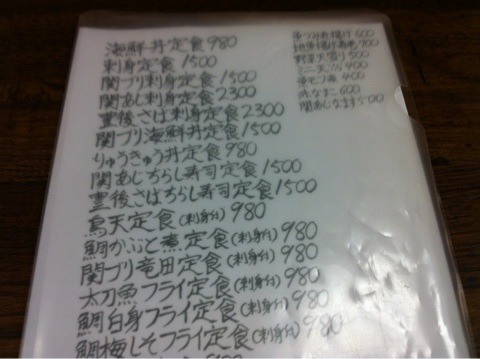 海鮮丼定食 980
刺身定食 1500
関ブリ刺身定食 1500
関あじ刺身定食 2300
豊後さば刺身定食 2300
関ブリ海鮮丼定食 1500
りゅうきゅう丼定食 980
関あじちらし寿司定食 1500
豊後さばちらし寿司定食 1500
鳥天定食(刺身付) 980
鯛かぶと煮定食(刺身付) 980
関ブリ竜田定食(刺身付) 980
太刀魚フライ定食(刺身付) 980
鯛白身フライ定食(刺身付) 980
鯛梅しそフライ定食(刺身付) 980
揚げ 600
地魚揚げ 700
野菜天盛り 500
ミニ天ぷら 400
400
赤なまこ 600
関あじなます 500